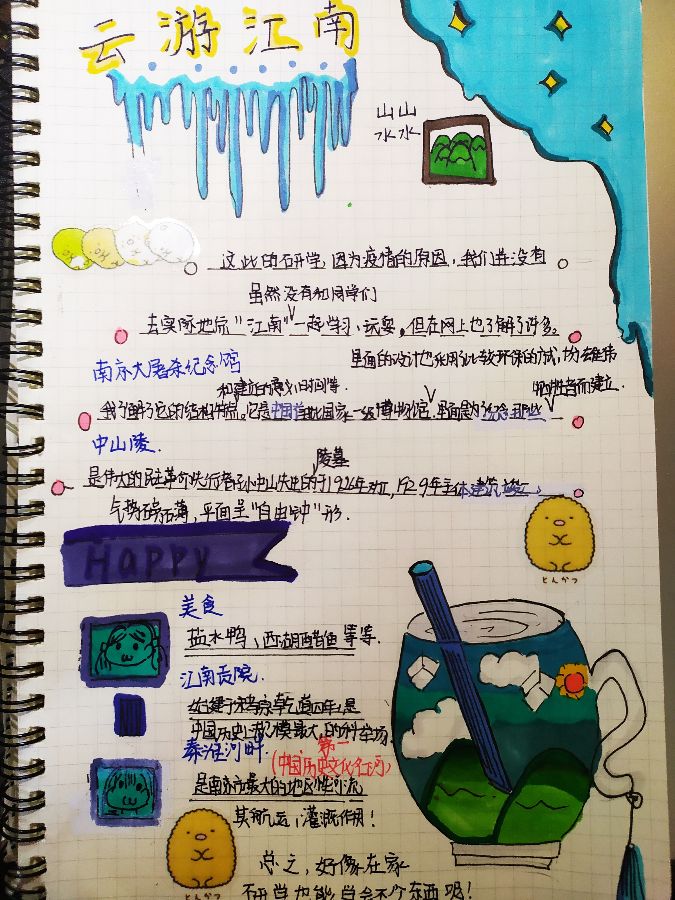 云游江南
山山
水水
这此的研学,因为疫情的原因,我们并没有
虽然没有和同学们
去实际地玩"江南"一起学习、玩耍,但在网上也了解了许多。
南京大屠杀纪念馆
里面的设计也采用比较环保的方式,
牺牲者而建立.
我了解了它的结构特点。它是中国首批国家一级博物馆,里面是为纪念那些
中山陵
陵墓
是伟大的民主革命先行者孙中山先生的于1926年动工,1929年主体建筑竣工,
气势磅礴,平面呈"自由钟"形.
Happy
とんかつ
美食
盐水鸭、西湖醋鱼等等.
江南贡院.
始建于宋乾道四年,是
中国历史上规模最大的科举场.
秦淮河畔.
第一
(中国历史文化名河)
是南京市最大的地区性河流
其航运,灌溉作用!
とんかつ
总之,好像在家
研学也能学会不少东西呢!